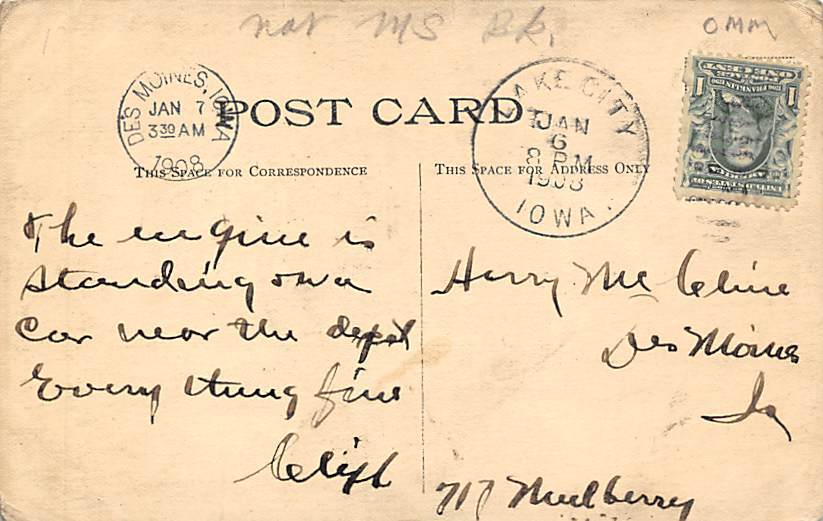 not MS Bk.
OMM
DES MOINES, IOWA
JAN 7
3 30 AM
1908
POST CARD.
LAKE CITY
JAN
6
8 PM
1908
IOWA.
THIS SPACE FOR CORRESPONDENCE
THIS SPACE FOR ADDRESS ONLY
POSTAGE
ONE CENT
1 1
FRANKLIN
UNITED STATES OF AMERICA
The engine is
standing on a
car near the depot
Every thing fine
Cliff
Harry Mc Cline
Des Moines
Ia
717 Mulberry